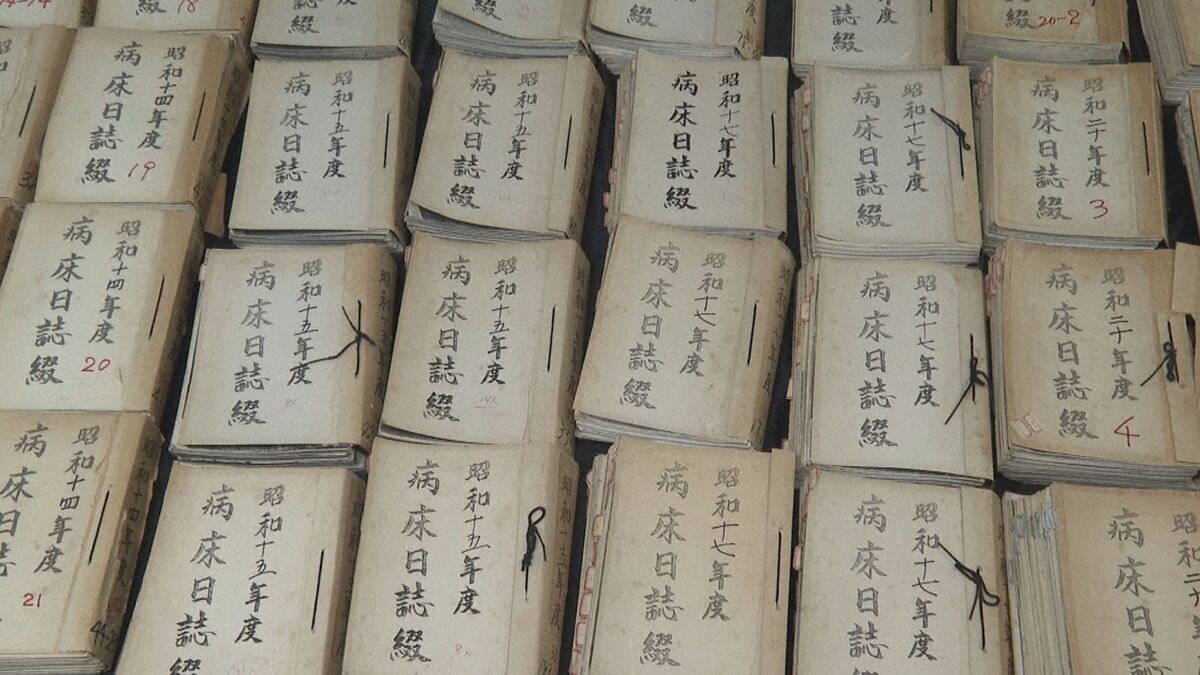 18
綴
綴
綴
年度
綴
綴
20-2
昭和十四年度
病床日誌綴
19
昭和十五年度
病床日誌綴
昭和十五年度
病床日誌綴
昭和十七年度
病床日誌綴
昭和十七年度
病床日誌綴
昭和二十年度
病床日誌綴
3
昭和十四年度
病床日誌綴
20
昭和十五年度
病床日誌綴
昭和十五年度
病床日誌綴
昭和十七年度
病床日誌綴
昭和十七年度
病床日誌綴
昭和二十年度
病床日誌綴
4
昭和十四年度
病床日誌
21
昭和十五年度
病床日誌綴
昭和十五年度
病床日誌綴
昭和十七年度
病床日誌綴
昭和十七年度
病床日誌綴
昭和二十年
病床日誌